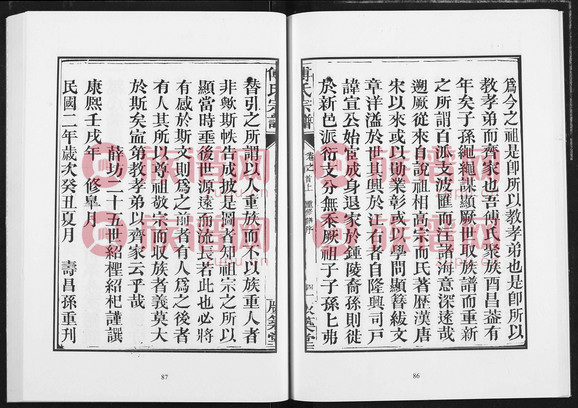 爲今之祖是卽所以教孝弟也是卽所以
教孝弟而齊家也吾傅氏聚族酉昌葢有
年矣子孫繩繩謀顯厥世取族譜而重新
之所謂百派支波匯而注諸海意深遠哉
遡厥從來自說祖相高宗而氏著歷漢唐
宋以來或以勛業彰或以學問顯簪紱文
章洋溢於世其興於江右者自隆興司戶
諱宣公始筮成身退家於鍾陵裔孫則徙
於新邑派衍支分無奈厥祖子子孫七弗
傅氏宗譜
卷之首上
重修譜序
四
86
傅氏宗譜
替引之所謂以人重族而不以族重人者
非歟斯帙告成披是圖者知祖宗之所以
顯當時垂後世源遠而流長者此也必將
有感於斯文則爲之前者有人爲之後者
有人其所以尊祖敬宗而收族者義莫大
於斯矣寧弟教孝弟以齊家云乎哉
薛坊二十五世紹裡紹祀謹撰
康熙壬戌年 修臯月
民國二年歲次癸丑夏月 壽昌孫重刋
87
族譜网
族譜网
族譜网
族譜网